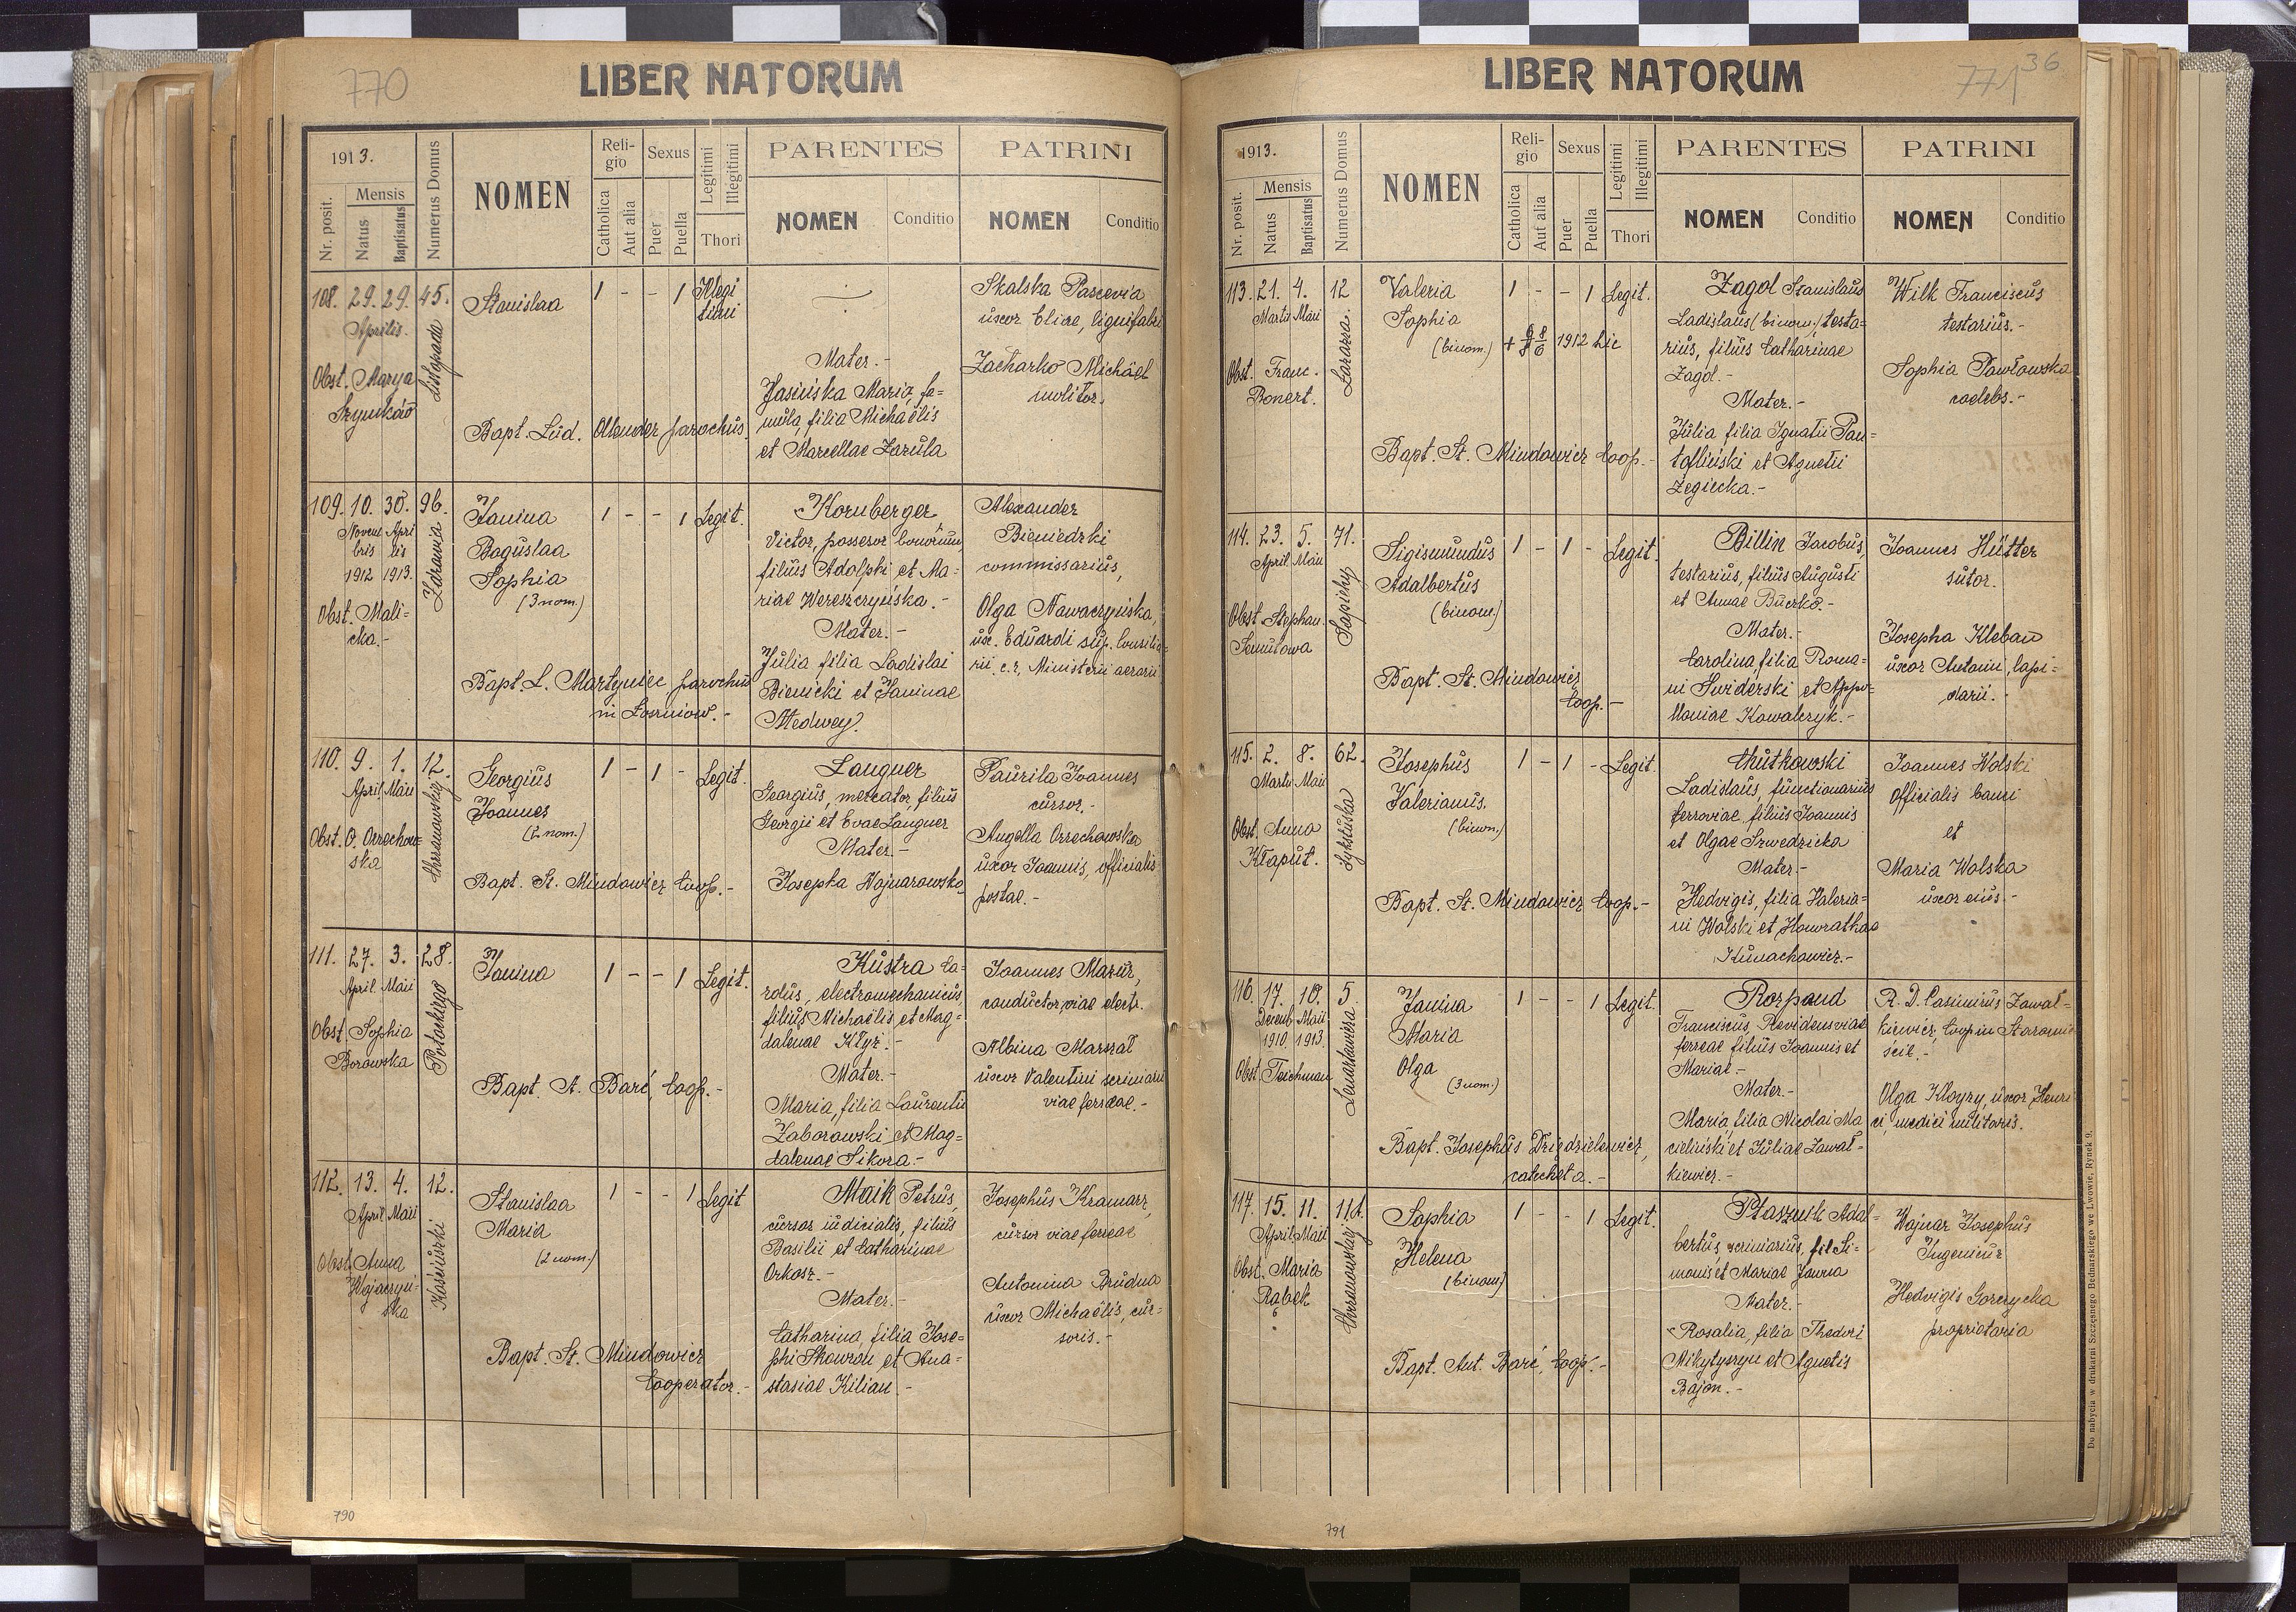 770
LIBER NATORUM
1913.
Nr. posit.
Mensis
Natus
Baptisatus
Numerus Domus
NOMEN
Religio
Catholica
Aut alia
Sexus
Puer
Puella
Legitimi
Illegitimi
Thori
PARENTES
NOMEN
Conditio
PATRINI
NOMEN
Conditio
108. 29. 29. 45.
Aprilis.
Listopada
Obst. Marya
Stanislaa
1 - - 1 Illegi
timi
Bapt. Lud. Ollender parochus.
Mater.-
Jasińska Maria, fa=
mula, filia Michaëlis
et Marcellae Zarula
Skalska Parcevia
uxor Eliae, lignifabri
Zacharko Michäel
molitor.
109. 10. 30. 96.
Novem Apri
bris lis
1912 1913.
Zdrowia
Obst. Mali-
cka.-
Janina
Boguslaa
Sophia
(3 nom.)
1 - - 1 Legit.
Bapt. L. Martyniec parochus
in Łosniow.-
Kornberger
Victor, possesor bonorum,
filius Adolphi et Ma=
riae Wereszczyńska.-
Mater.-
Julia filia Ladislai
Bienicki et Janinae
Medwey.
Alexander
Bieniedzki
commissarius,
Olga Nawaczyńska,
ux. Eduardi sup. Consilia-
rii c. r. Ministerii aerarii
110. 9. 1. 12.
April Maii
Chrzanowskiej
Obst. O. Orzechow=
ska
Georgius
Joannes
(2 nom.)
1 - 1 - Legit.
Bapt. St. Mindowicz Coop.-
Langner
Georgius, mercator, filius
Georgii et Evae Langner
Mater.-
Josepha Wojnarowska
Paurila Joannes
cursor.-
Angella Orzechowska
uxor Joannis, officialis
postae.-
111. 27. 3. 28.
April. Maii
Potockiego
Obst. Sophia
Borowska
Janina
1 - - 1 Legit.
Bapt. A. Barć, Coop.-
Kustra Ca-
rolus, electromechanicus,
filius Michaëlis et Mag=
dalenae Kłyż.-
Mater.-
Maria, filia Laurentii
Zaborowski et Mag=
dalenae Sikora.-
Joannes Mazur,
conductor viae electr.
Albina Marszał
uxor Valentini scriniarii
viae ferreae.-
112. 13. 4. 12.
April Maii
Kościuszki
Obst. Anna
Wojaczyń-
ska
Stanislaa
Maria
(2 nom.)
1 - - 1 Legit
Bapt. St. Mindowicz
Cooperator.-
Maik Petrus,
cursor iudicialis, filius
Basilii et Catharinae
Orkosz.-
Mater.-
Catharina, filia Jose=
phi Skowron et Ana=
stasiae Kilian.-
Josephus Kramarz,
cursor viae ferreae
Antonina Brudna
uxor Michaëlis, cur=
soris.-
790
771 36
LIBER NATORUM
1913.
Nr. posit.
Mensis
Natus
Baptisatus
Numerus Domus
NOMEN
Religio
Catholica
Aut alia
Sexus
Puer
Puella
Legitimi
Illegitimi
Thori
PARENTES
NOMEN
Conditio
PATRINI
NOMEN
Conditio
113. 21. 4. 12
Martii Maii
Łazarza.
Obst. Franc.
Bonert.
Valeria
Sophia
(binom.)
1 - - 1 Legit.
Bapt. St. Mindowicz Coop.-
Zagol Stanislaus
Ladislaus (binom.) testa=
rius, filius Catharinae
Zagol.-
Mater.-
Julia filia Ignatii Pan=
tofliński et Agnetii
Zegiecka.-
Wilk Franciscus
testarius.-
Sophia Pawłowska
caelebs.-
114. 23. 5. 71.
April Maii
Sapiehy
Obst Stephan.
Sigismundus
Adalbertus
(binom.)
1 - 1 - Legit.
Bapt. St. Mindowicz
Coop.-
Billin Jacobus,
testarius, filius Augusti
et Annae Buczko.-
Mater.-
Carolina, filia Roma=
ni Swiderski et Appo=
loniae Kowalczyk.-
Joannes Hütter
sutor.
Josepha Kleban
uxor Antonii, lapi=
darii.-
115. 2. 8. 62.
Martii Maii
Sykstuska
Obst. Anna
Kłaput.
Josephus
Valerianus.
(binom.)
1 - 1 - Legit.
Bapt. St. Mindowicz Coop.-
Chutkowski
Ladislaus, functionarius
ferroviae, filius Joannis
et Olgae Szwedzicka
Mater.-
Hedvigis, filia Valeria=
ni Wolski et Honorathae
Kunachowicz.-
Joannes Wolski
Officialis banci
et
Maria Wolska
uxor eius.-
116. 17. 10. 5.
Decemb. Maii
1910. 1913.
Lenartowicza
Obst. Teichman
Janina
Maria
Olga
(3 nom.)
1 - - 1 Legit.
Bapt. Josephus Dziędzielewicz,
catecheta.-
Rozpond
Franciscus, Revidens viae
ferreae filius Joannis et
Mariae.-
Mater.-
Maria, filia Nicolai Ma
cieliński et Juliae Zawał-
kiewicz.-
R. D. Casimirus Zawał=
kiewicz, Coop in Staromie
ście.-
Olga Kloyzy, uxor Henri
ci, medici militaris.
117. 15. 11. 11A.
April Maii
Chrzanowskiej
Obst. Maria
Rąbek
Sophia
Helena
(binom)
1 - - 1 Legit.
Bapt. Ant. Barć, Coop.-
Ptasznik Adal=
bertus, scriniarius, fil. Si-
monis et Mariae Jawna
Mater.-
Rosalia, filia Theodori
Mikytyszyn et Agnetis
Bajon.-
Wojnar Josephus
Ingenieur
Hedvigis Gorczycka
proprietaria
Do nabycia w drukarni Szczęsnego Bednarskiego we Lwowie, Rynek 9.
791